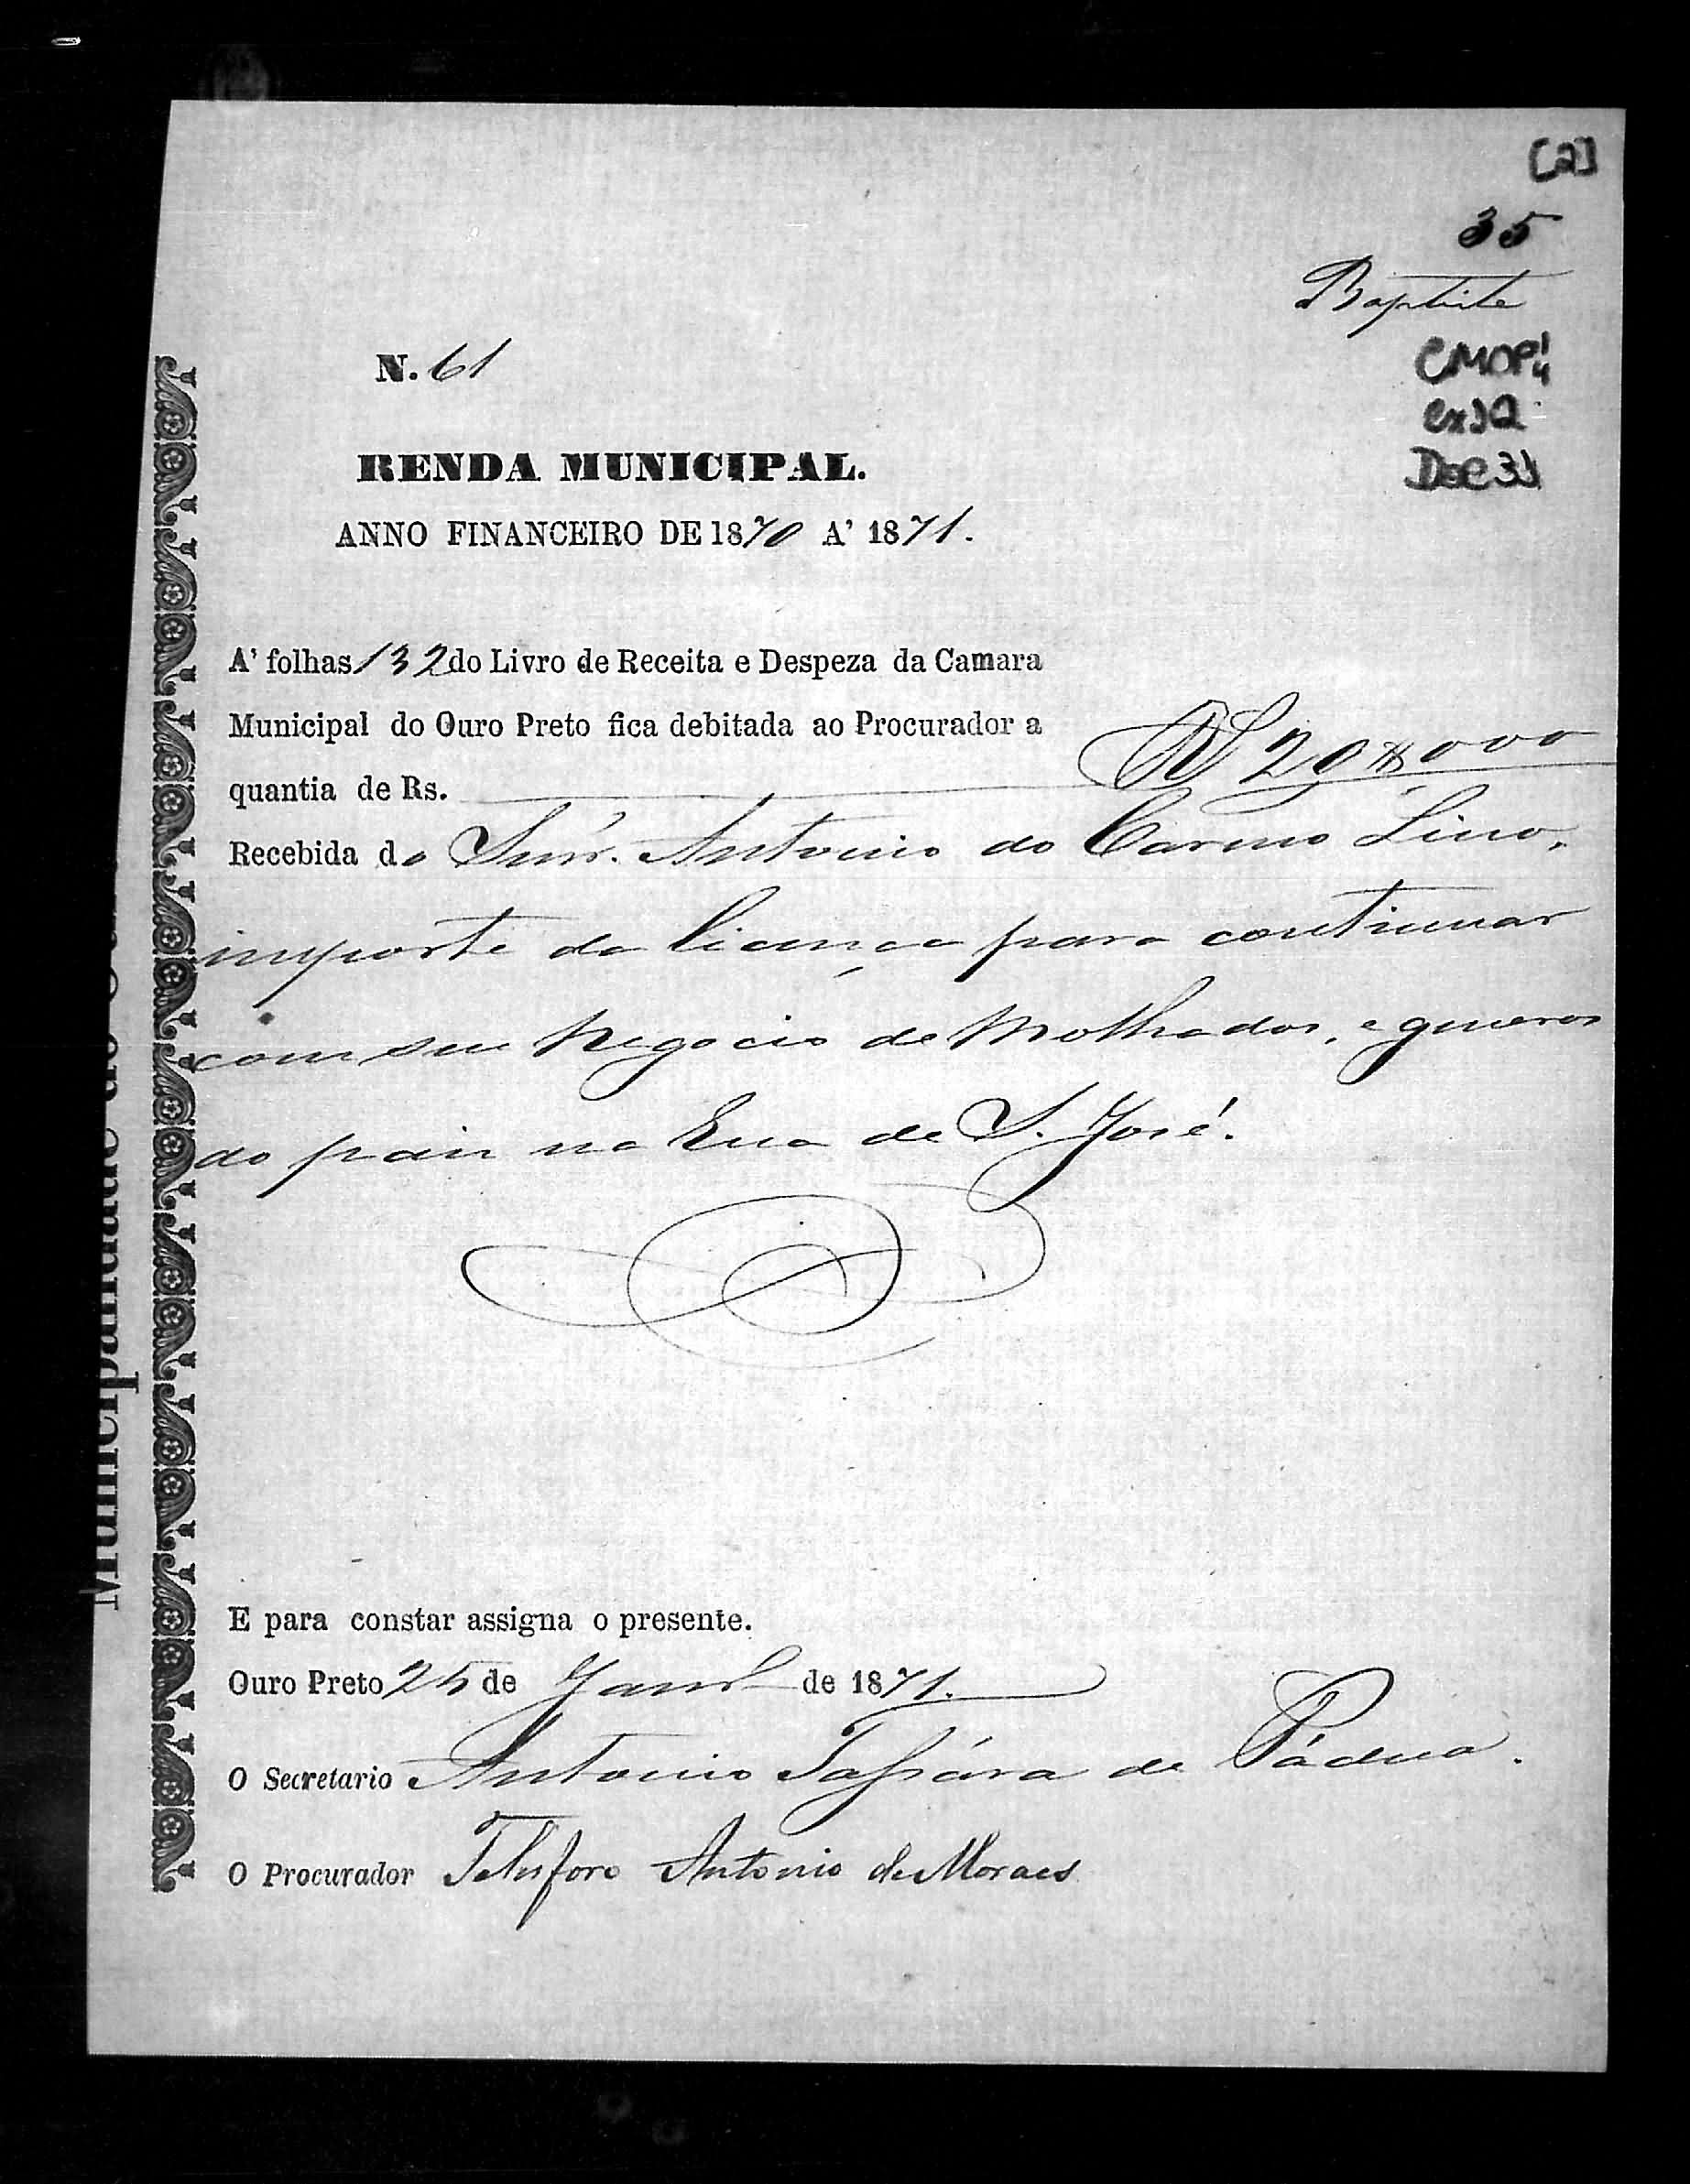 [2]
35
Baptista
CMOP 1/4
cx 12
Doc 31
N. 61
RENDA MUNICIPAL.
ANNO FINANCEIRO DE 1870 A' 1871.
A' folhas 132 do Livro de Receita e Despeza da Camara
Municipal do Ouro Preto fica debitada ao Procurador a
quantia de Rs. R$ 20$000
Recebida do Snr. Antonio do Carmo Lino,
importe da licença para continuar
com seu Negocio de Molhados, e generos
do paiz na Rua de S. José.
E para constar assigna o presente.
Ouro Preto 25 de Janro de 1871.
O Secretario Antonio Tassára de Pádua.
O Procurador Telesforo Antonio de Moraes
Municipalidade do